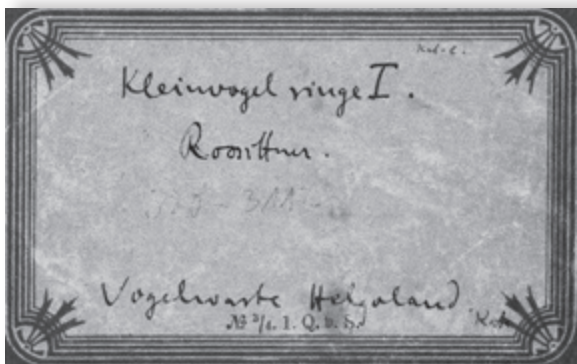 Kleinvogel ringe I.
Rossittner.
Vogelwarte Helgoland
№ 3/4. 1. Q. b. H.